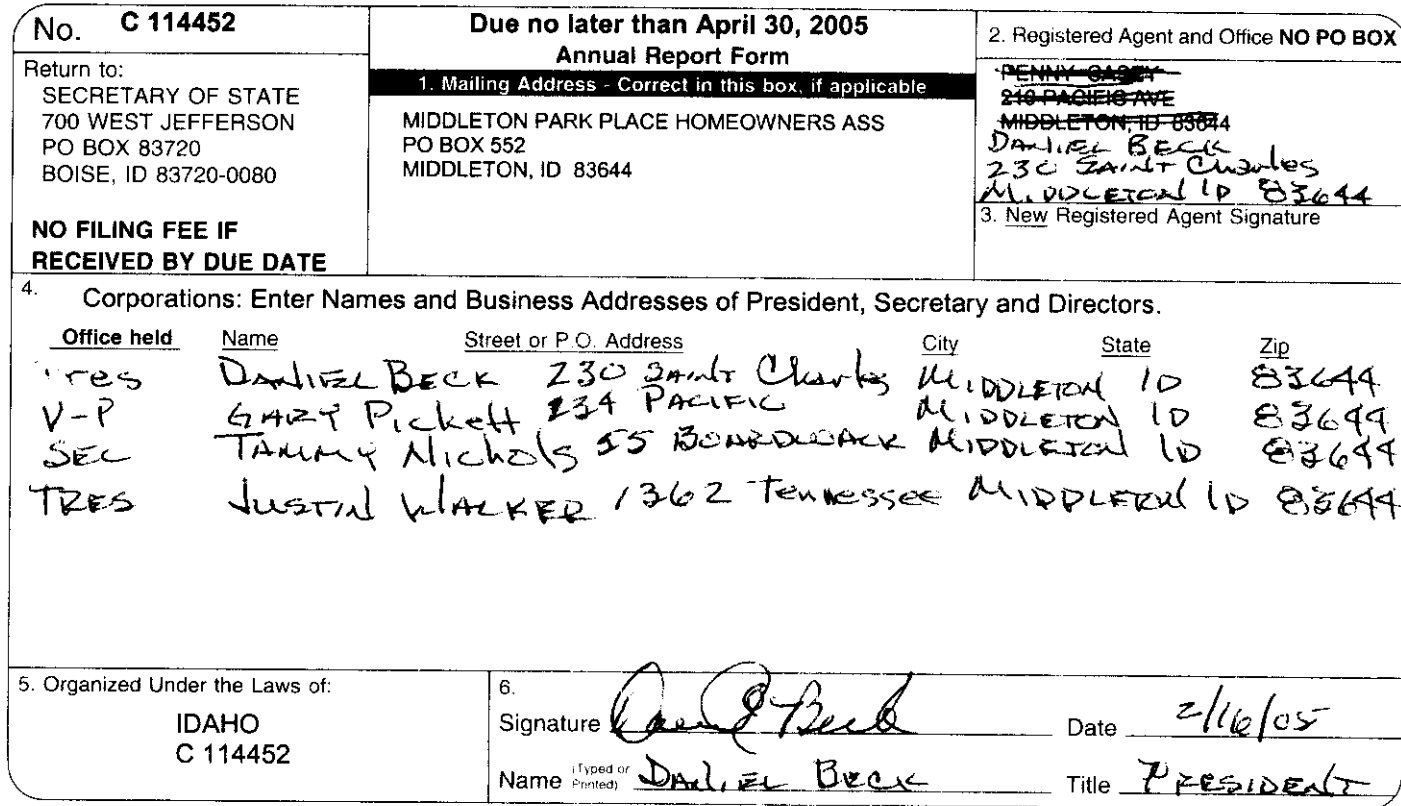 No. C 114452
Return to:
SECRETARY OF STATE
700 WEST JEFFERSON
PO BOX 83720
BOISE, ID 83720-0080
NO FILING FEE IF
RECEIVED BY DUE DATE
Due no later than April 30, 2005
Annual Report Form
1. Mailing Address - Correct in this box, if applicable
MIDDLETON PARK PLACE HOMEOWNERS ASS
PO BOX 552
MIDDLETON, ID 83644
2. Registered Agent and Office NO PO BOX
PENNY CASEY
210 PACIFIC AVE
MIDDLETON, ID 83644
DANIEL BECK
230 SAINT Charles
MIDDLETON ID 83644
3. New Registered Agent Signature
4. Corporations: Enter Names and Business Addresses of President, Secretary and Directors.
Office held Name Street or P.O. Address City State Zip
Pres DANIEL BECK 230 SAINT Charles MIDDLETON ID 83644
V-P GARY Pickett 234 PACIFIC MIDDLETON ID 83644
SEC TAMMY Nichols 55 BOARDWALK MIDDLETON ID 83644
TRES JUSTIN WALKER 1362 Tennessee MIDDLETON ID 83644
5. Organized Under the Laws of:
IDAHO
C 114452
6.
Signature Daniel Beck Date 2/16/05
Name (Typed or Printed) DANIEL BECK Title PRESIDENT